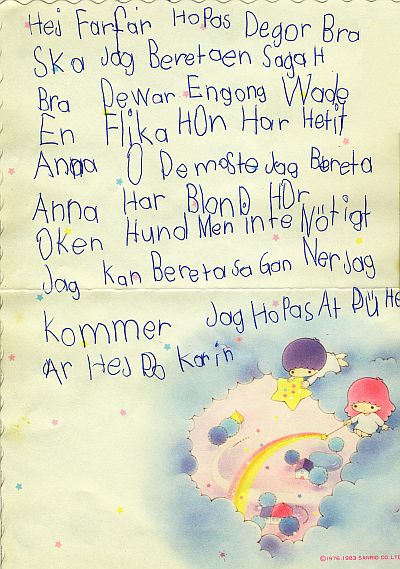 Hej Farfar Hopas Degor Bra
Ska Jag Beretaen Saga H
Bra Dewar Engong Wade
En Flika HOn Har Hetit
Anna O Demoste Jag Bereta
Anna Har BlonD HOr
OKen Hund Men inte Nötigt
Jag Kan Beretasa Gan Ner Jag
kommer Jag Hopas At Dü He
Ar Hej Do Karin
©1976, 1983 SANRIO CO., LTD.